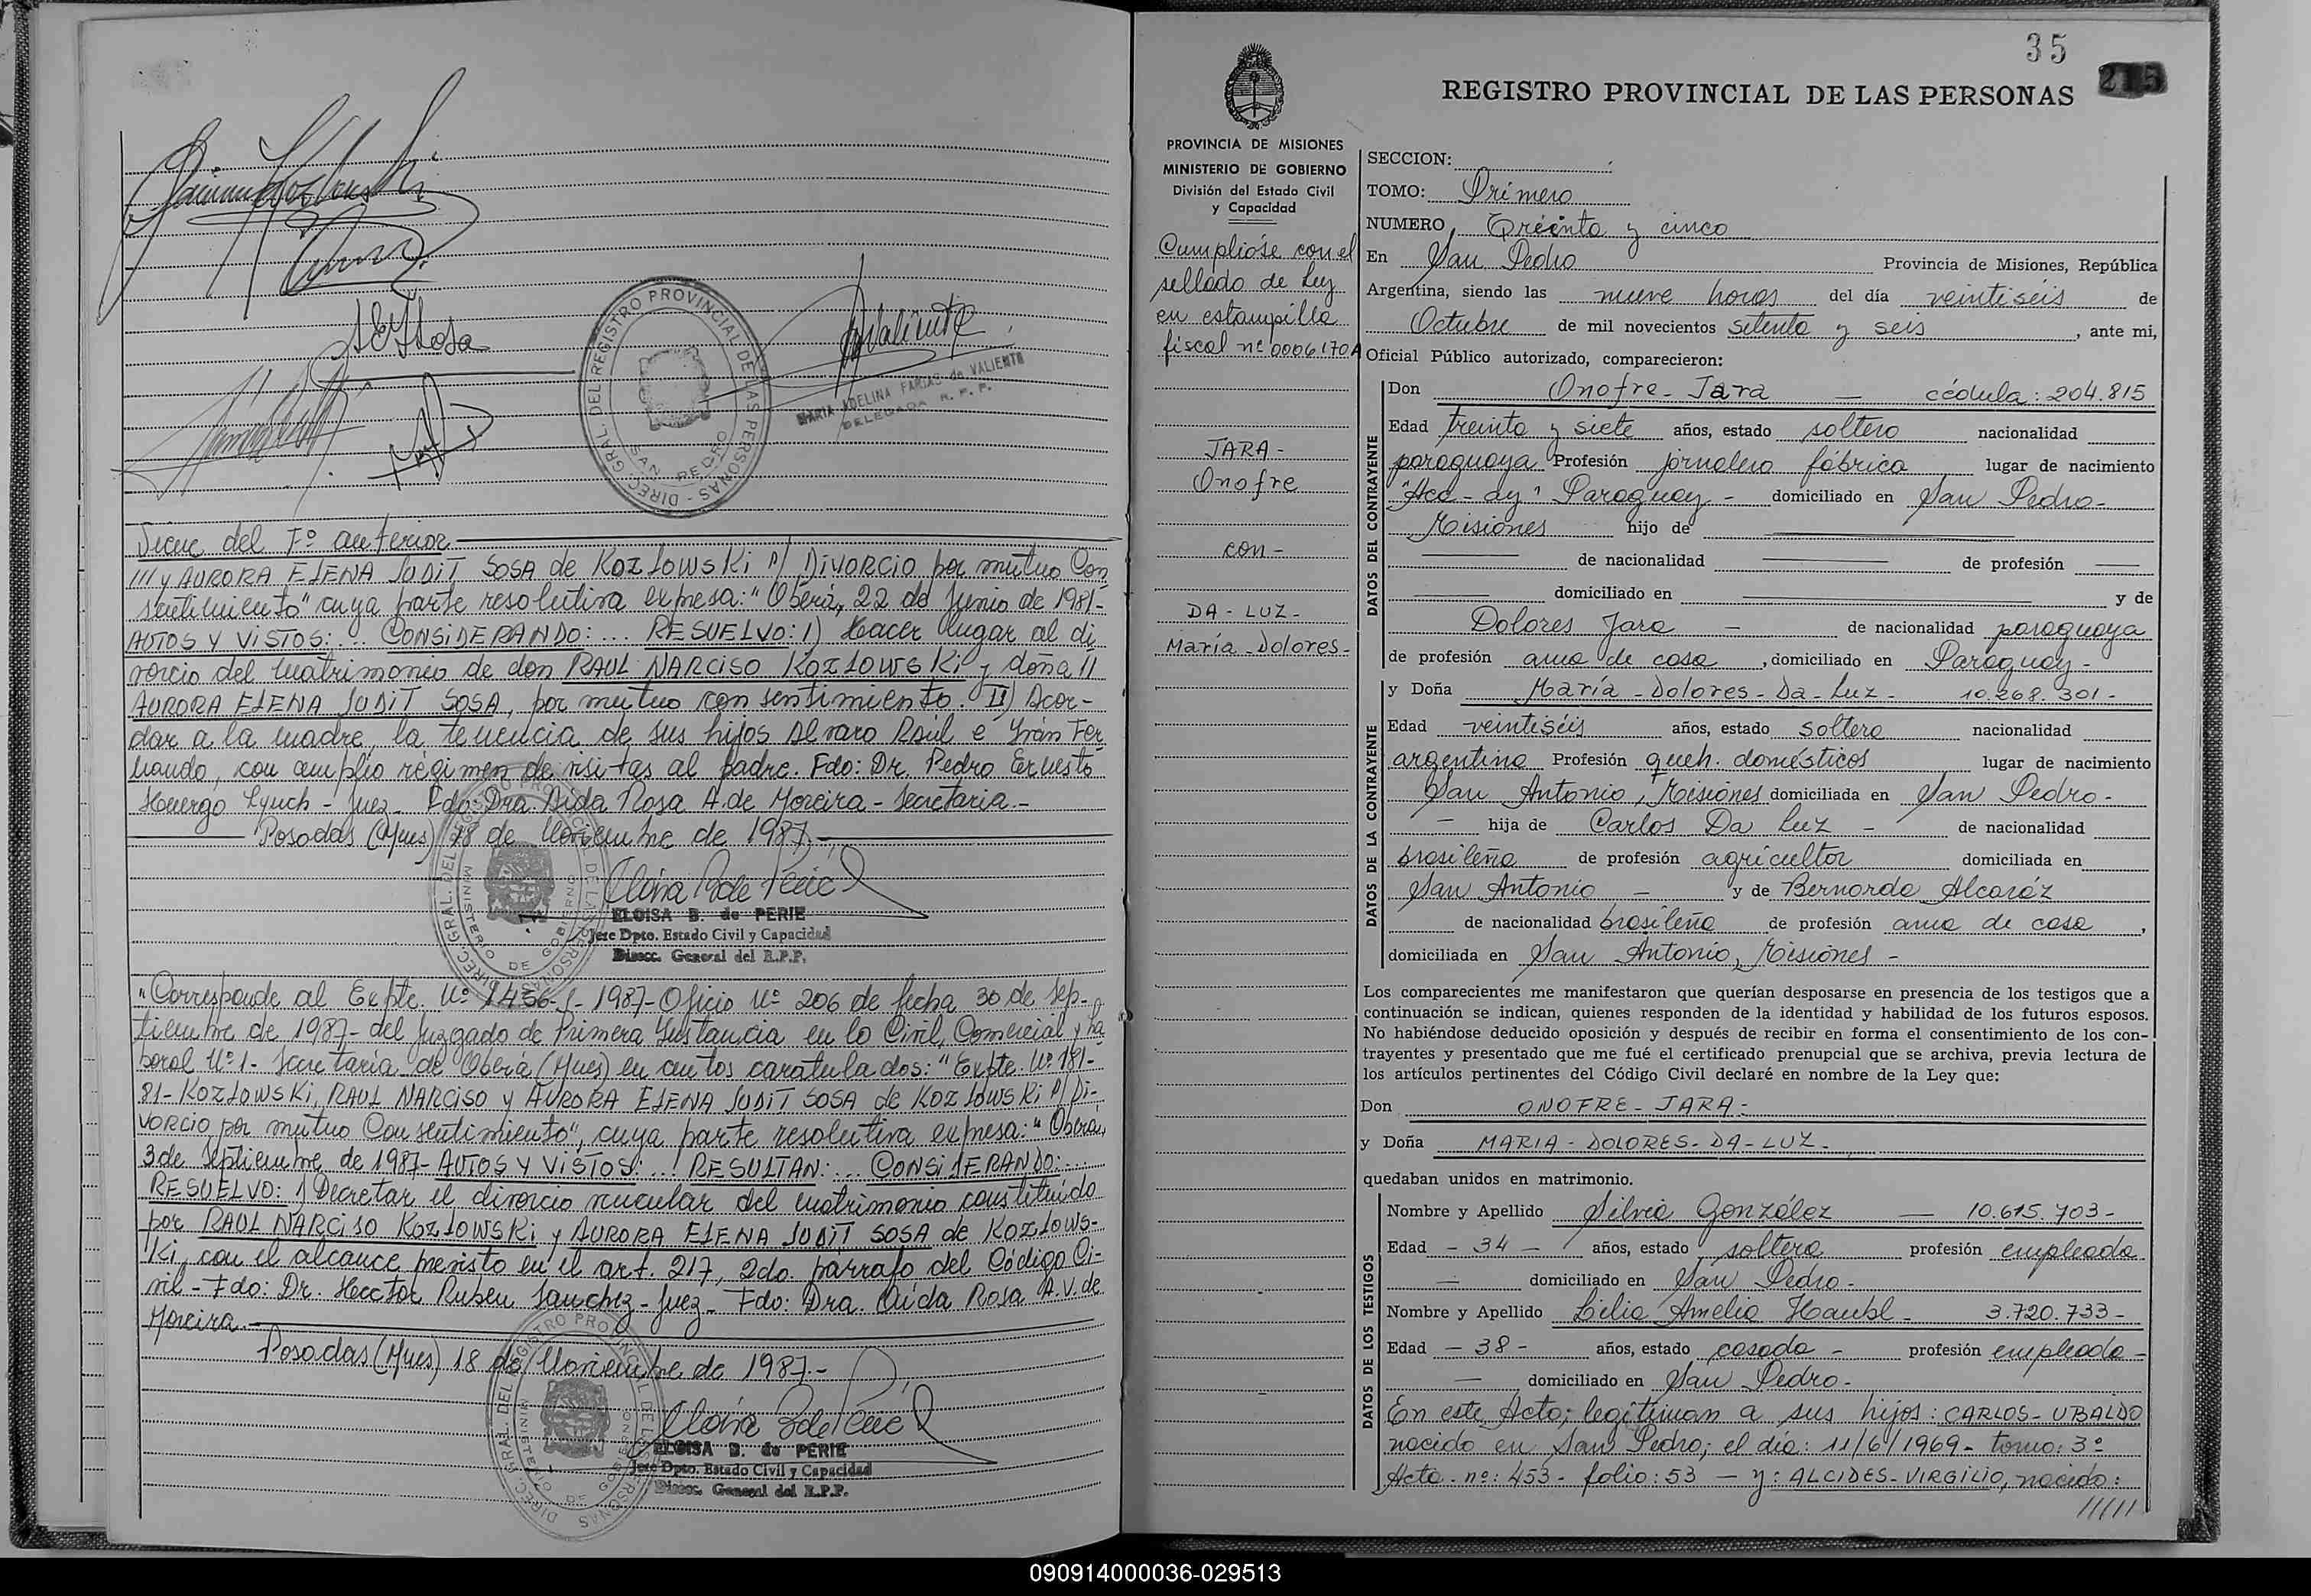 A E J Sosa
AValiente
DIREC. GRAL. DEL REGISTRO PROVINCIAL DE LAS PERSONAS -
SAN PEDRO
MARIA ADELINA FARIAS de VALIENTE
DELEGADA R. P. P.
Sigue del Fº anterior
/// y AURORA ELENA JUDIT SOSA de KOZLOWSKI s/ DIVORCIO por mutuo Con
sentimiento" cuya parte resolutiva expresa: "Oberá, 22 de Junio de 1981-
AUTOS Y VISTOS: ... CONSIDERANDO: ... RESUELVO: I) Hacer lugar al di
vorcio del matrimonio de don RAUL NARCISO KOZLOWSKI y doña //
AURORA ELENA JUDIT SOSA, por mutuo consentimiento. II) Acor-
dar a la madre, la tenencia de sus hijos Alvaro Raúl e Iván Fer
nando, con amplio régimen de visitas al padre. Fdo: Dr. Pedro Ernesto
Huergo Lynch - Juez - Fdo: Dra. Aida Rosa A. de Moreira - Secretaria.-
Posadas (Mnes) 18 de Noviembre de 1987.-
ELOISA B. de PERIE
Jefe Dpto. Estado Civil y Capacidad
Direcc. General del R.P.P.
"Corresponde al Expte. Nº 1456-J-1987- Oficio Nº 206 de fecha 30 de Sep-
tiembre de 1987- del Juzgado de Primera Instancia en lo Civil, Comercial y La
boral Nº 1- Secretaría de Oberá (Mnes) en autos caratulados: "Expte. Nº 181-
81- KOZLOWSKI, RAUL NARCISO y AURORA ELENA JUDIT SOSA de KOZLOWSKI s/ DI-
VORCIO por mutuo Consentimiento", cuya parte resolutiva expresa: "Oberá,
3 de Septiembre de 1987- AUTOS Y VISTOS: ... RESULTAN: ... CONSIDERANDO: ...
RESUELVO: 1) Decretar el divorcio vincular del matrimonio constituído
por RAUL NARCISO KOZLOWSKI y AURORA ELENA JUDIT SOSA de KOZLOWS-
KI, con el alcance previsto en el art. 217, 2do. párrafo del Código Ci-
vil - Fdo: Dr. Hecctor Ruben Sanchez - Juez - Fdo: Dra. Aída Rosa A. V. de
Moreira.-
Posadas (Mnes) 18 de Noviembre de 1987.-
ELOISA B. de PERIE
Jefe Dpto. Estado Civil y Capacidad
Direcc. General del R.P.P.
35
215
REGISTRO PROVINCIAL DE LAS PERSONAS
PROVINCIA DE MISIONES
MINISTERIO DE GOBIERNO
División del Estado Civil
y Capacidad
Cumplióse con el
sellado de Ley
en estampilla
fiscal nº 0006170A
JARA -
Onofre
con -
DA - LUZ -
María - Dolores -
SECCION:
TOMO: Primero
NUMERO Treinta y cinco
En San Pedro Provincia de Misiones, República
Argentina, siendo las nueve horas del día veintiséis de
Octubre de mil novecientos setenta y seis, ante mi,
Oficial Público autorizado, comparecieron:
DATOS DEL CONTRAYENTE
Don Onofre - Jara — cédula: 204.815
Edad treinta y siete años, estado soltero nacionalidad
paraguaya Profesión jornalero fábrica lugar de nacimiento
"Aca-ay" Paraguay - domiciliado en San Pedro -
Misiones hijo de
de nacionalidad de profesión
domiciliado en y de
Dolores Jara - de nacionalidad paraguaya
de profesión ama de casa, domiciliado en Paraguay -
DATOS DE LA CONTRAYENTE
y Doña María - Dolores - Da - Luz - 10.268.301 -
Edad veintiséis años, estado soltera nacionalidad
argentina Profesión queh. domésticos lugar de nacimiento
San Antonio, Misiones domiciliada en San Pedro -
- hija de Carlos Da Luz - de nacionalidad
brasileña de profesión agricultor domiciliada en
San Antonio - y de Bernarda Alcaráz
de nacionalidad brasileña de profesión ama de casa,
domiciliada en San Antonio, Misiones -
Los comparecientes me manifestaron que querían desposarse en presencia de los testigos que a
continuación se indican, quienes responden de la identidad y habilidad de los futuros esposos.
No habiéndose deducido oposición y después de recibir en forma el consentimiento de los con-
trayentes y presentado que me fué el certificado prenupcial que se archiva, previa lectura de
los artículos pertinentes del Código Civil declaré en nombre de la Ley que:
Don ONOFRE - JARA -
y Doña MARIA - DOLORES - DA - LUZ -
quedaban unidos en matrimonio.
DATOS DE LOS TESTIGOS
Nombre y Apellido Silvia González — 10.615.703 -
Edad - 34 - años, estado soltera profesión empleada
- domiciliado en San Pedro -
Nombre y Apellido Lilia Amelia Haubl - 3.720.733 -
Edad - 38 - años, estado casada - profesión empleada -
- domiciliado en San Pedro -
En este Acto; legitiman a sus hijos: CARLOS - UBALDO
nacido en San Pedro; el día: 11/6/1969 - tomo: 3º
Acta. nº: 453 - folio: 53 — y: ALCIDES - VIRGILIO, nacido:
//////
090914000036-029513